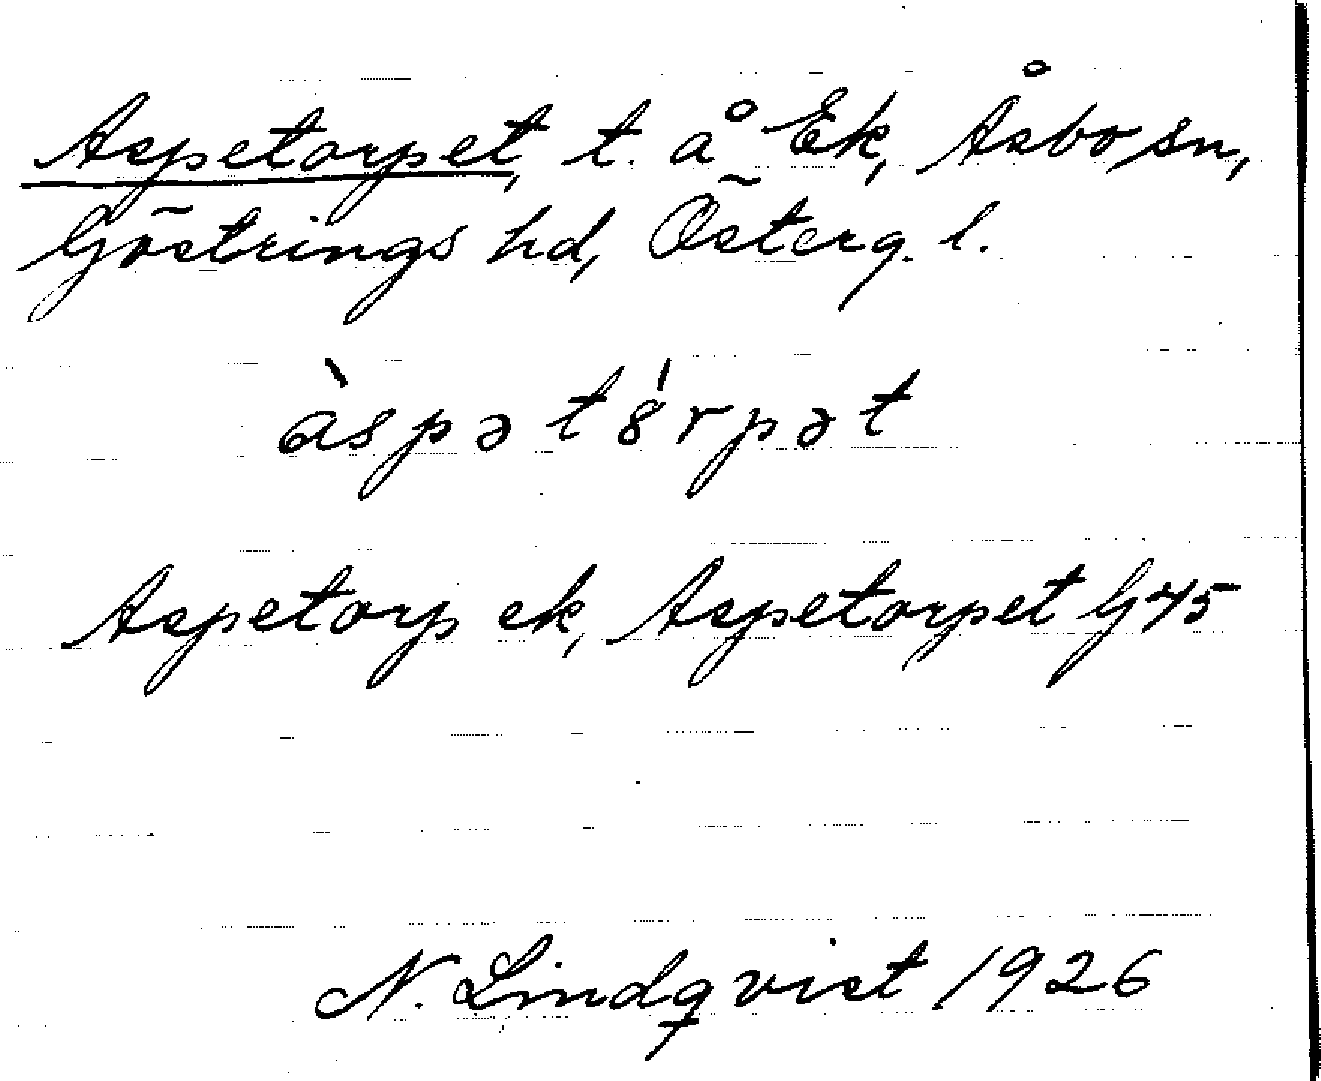 Aspetorpet, t. å Ek, Åsbo sn,
Göstrings hd, Österg. l.
àspətȣ́rpət
Aspetorp ek, Aspetorpet G45
N. Lindqvist 1926